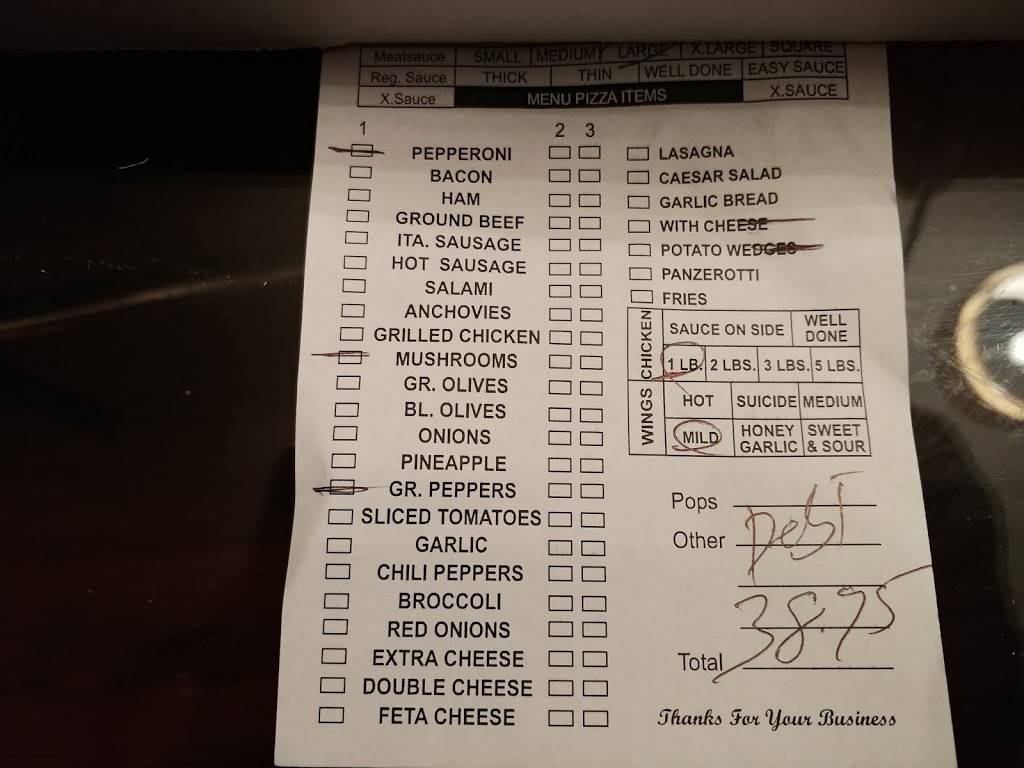 Meatsauce SMALL MEDIUM LARGE X.LARGE SQUARE
Reg. Sauce THICK THIN WELL DONE EASY SAUCE
X.Sauce MENU PIZZA ITEMS X.SAUCE
1 2 3
PEPPERONI
BACON
HAM
GROUND BEEF
ITA. SAUSAGE
HOT SAUSAGE
SALAMI
ANCHOVIES
GRILLED CHICKEN
MUSHROOMS
GR. OLIVES
BL. OLIVES
ONIONS
PINEAPPLE
GR. PEPPERS
SLICED TOMATOES
GARLIC
CHILI PEPPERS
BROCCOLI
RED ONIONS
EXTRA CHEESE
DOUBLE CHEESE
FETA CHEESE
LASAGNA
CAESAR SALAD
GARLIC BREAD
WITH CHEESE
POTATO WEDGES
PANZEROTTI
FRIES
WINGS CHICKEN
SAUCE ON SIDE WELL DONE
1 LB. 2 LBS. 3 LBS. 5 LBS.
HOT SUICIDE MEDIUM
MILD HONEY GARLIC SWEET & SOUR
Pops
Other DebT
Total 38.95
Thanks For Your Business